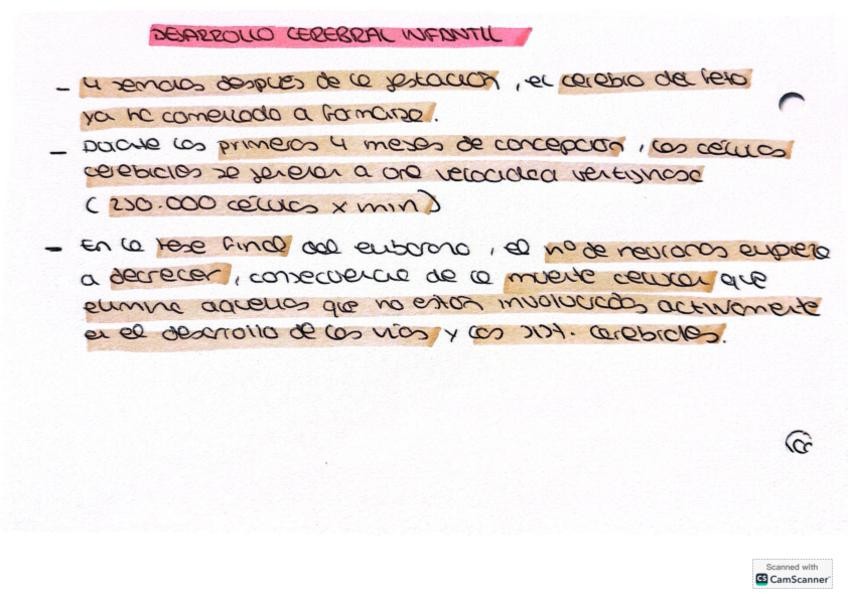 DESARROLLO CEREBRAL INFANTIL
- 4 semanas después de la gestación, el cerebro del feto
ya ha comenzado a formarse.
- Durante los primeros 4 meses de concepción, las células
cerebrales se generan a una velocidad vertiginosa
(250.000 células x min)
- En la fase final del embarazo, el nº de neuronas empieza
a decrecer, consecuencia de la muerte celular que
elimina aquellas que no están involucradas activamente
en el desarrollo de las vías y los sist. cerebrales.
Scanned with
CS CamScanner